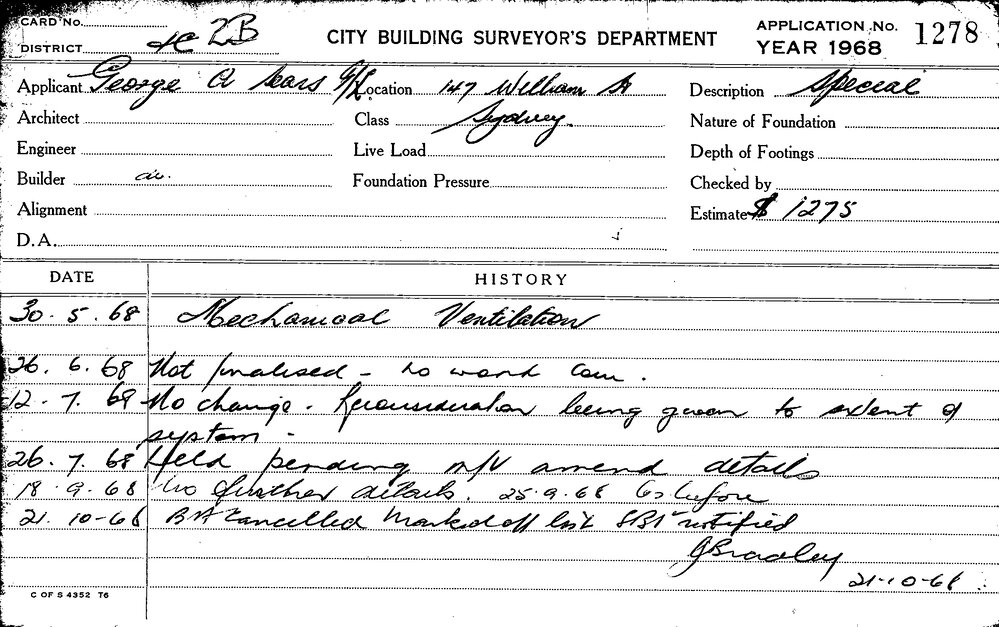 CARD No.
DISTRICT 2B
CITY BUILDING SURVEYOR'S DEPARTMENT
APPLICATION No. 1278
YEAR 1968
Applicant George A Sears P/L Location 147 William St Description Special
Architect Class Sydney. Nature of Foundation
Engineer Live Load Depth of Footings
Builder Foundation Pressure Checked by
Alignment Estimate $ 1275
D.A.
DATE HISTORY
30.5.68 Mechanical Ventilation
26.6.68 Not finalised - no work com.
12.7.68 No change. Reconsideration being given to extent of
system.
26.7.68 Held pending m/v amend details
18.9.68 No further details. 25.9.68 as before
21.10-68 BA Cancelled Marked off list notified
GBradley
21-10-68
C OF S 4352 T6